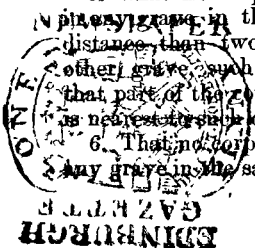 in any grave in th
distance than two
other grave, such
that part of the co
is nearest to such
6. That no corp
any grave in the sa
NEWSPAPER
ONE
EDINBURGH
GAZETTE